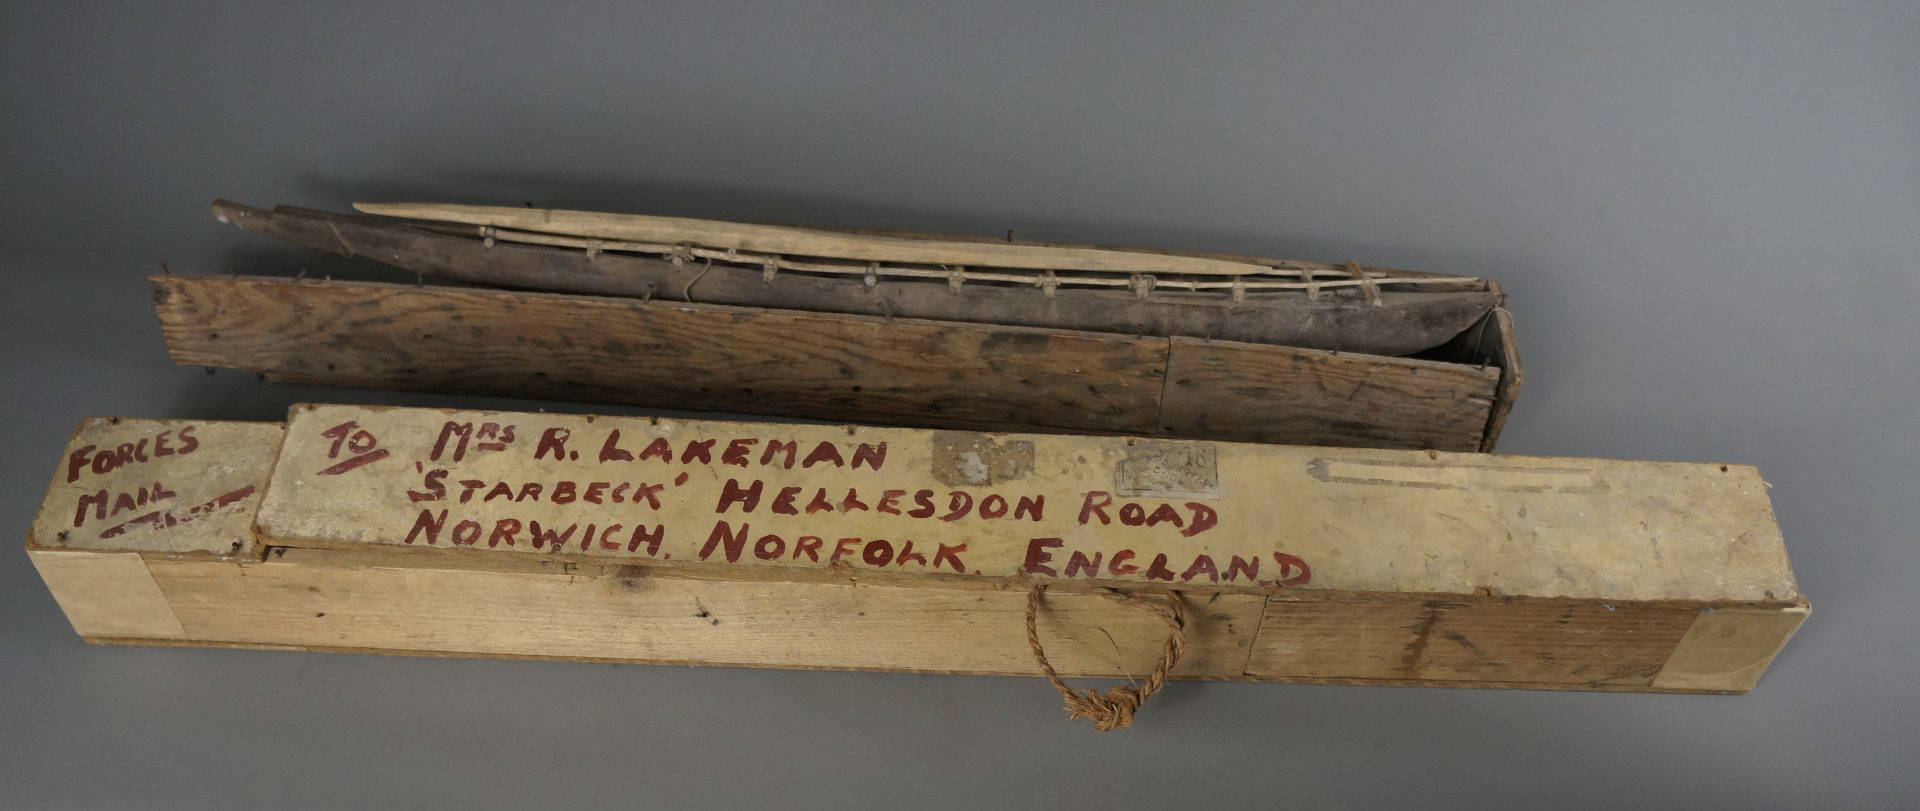 FORCES
MAIL
TO MRS R. LAKEMAN
'STARBECK' HELLESDON ROAD
NORWICH. NORFOLK. ENGLAND